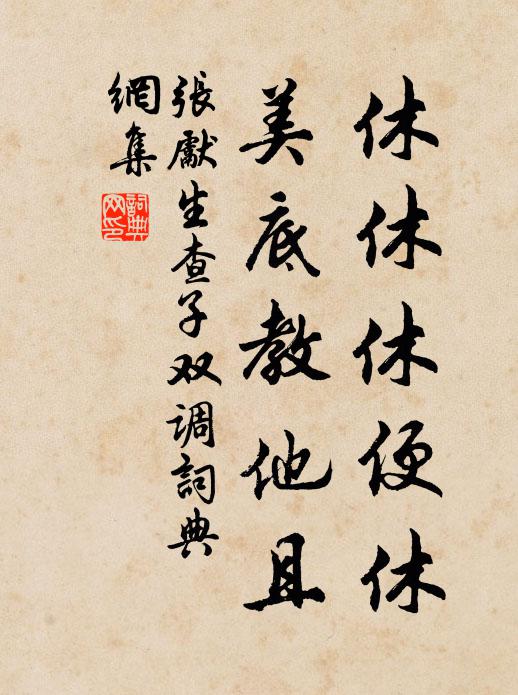 休休休便休
美底教他且
張獻生查子双调詞典
網集
詞典網印